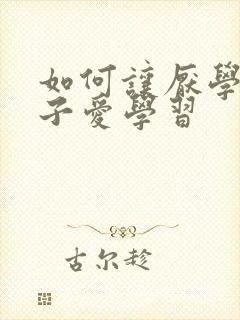 如何讓厭學
子愛學習
古尔趁